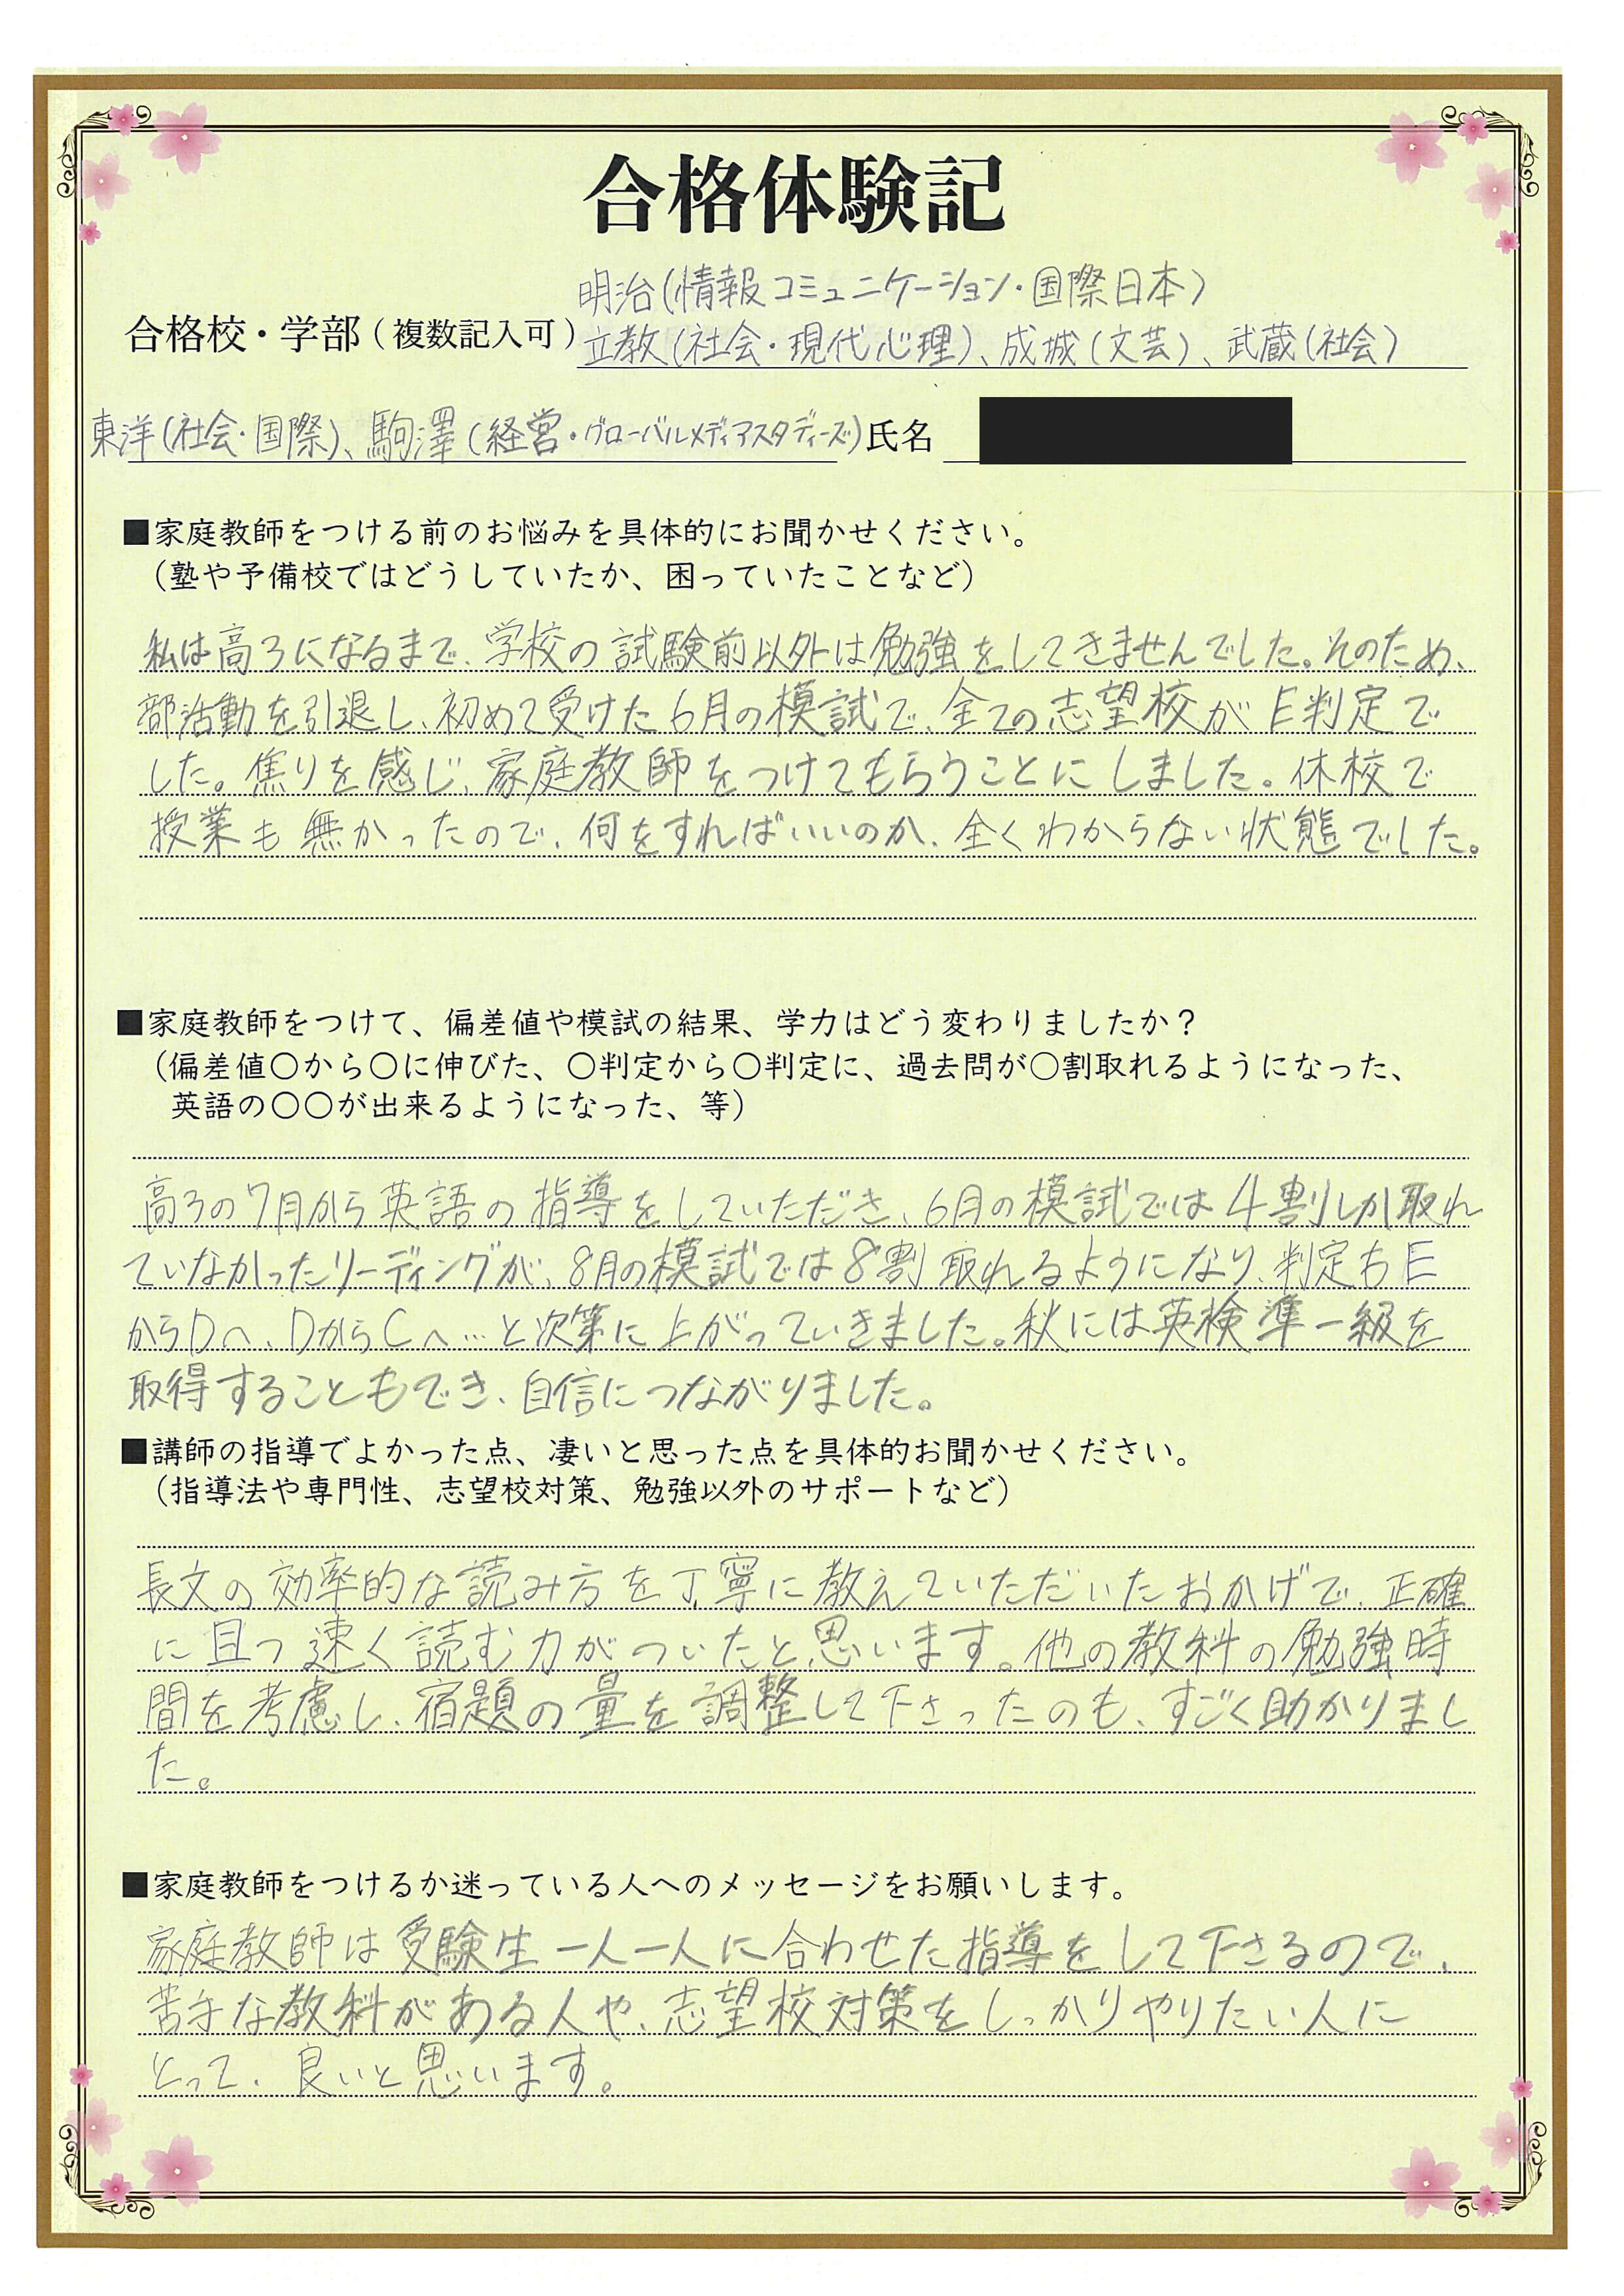 合格体験記
明治(情報コミュニケーション・国際日本)
合格校・学部(複数記入可)立教(社会・現代心理)、成城(文芸)、武蔵(社会)
東洋(社会・国際)、駒澤(経営・グローバルメディアスタディーズ)氏名
■家庭教師をつける前のお悩みを具体的にお聞かせください。
(塾や予備校ではどうしていたか、困っていたことなど)
私は高3になるまで、学校の試験前以外は勉強をしてきませんでした。そのため、
部活動を引退し、初めて受けた6月の模試で、全ての志望校がE判定で
した。焦りを感じ、家庭教師をつけてもらうことにしました。休校で
授業も無かったので、何をすればいいのか、全くわからない状態でした。
■家庭教師をつけて、偏差値や模試の結果、学力はどう変わりましたか?
(偏差値〇から〇に伸びた、〇判定から〇判定に、過去問が〇割取れるようになった、
英語の〇〇が出来るようになった、等)
高3の7月から英語の指導をしていただき、6月の模試では4割しか取れ
ていなかったリーディングが、8月の模試では8割取れるようになり、判定もE
からDへ、DからCへ…と次第に上がっていきました。秋には英検準一級を
取得することもでき、自信につながりました。
■講師の指導でよかった点、凄いと思った点を具体的お聞かせください。
(指導法や専門性、志望校対策、勉強以外のサポートなど)
長文の効率的な読み方を丁寧に教えていただいたおかげで、正確
に且つ速く読む力がついたと思います。他の教科の勉強時
間を考慮し、宿題の量を調整して下さったのも、すごく助かりまし
た。
■家庭教師をつけるか迷っている人へのメッセージをお願いします。
家庭教師は受験生一人一人に合わせた指導をして下さるので、
苦手な教科がある人や、志望校対策をしっかりやりたい人に
とって、良いと思います。